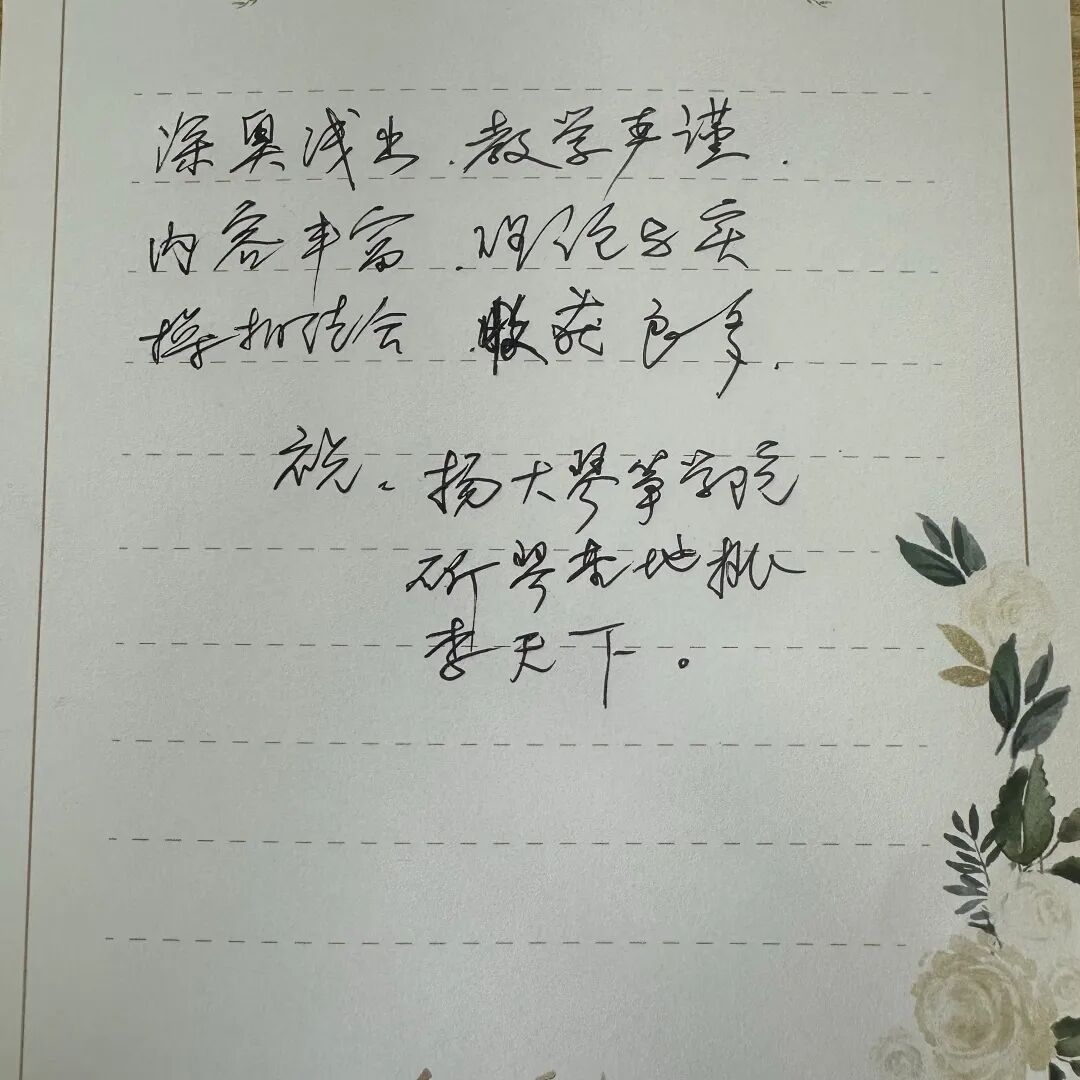 深奥浅出.教学严谨.
内容丰富.理论与实
操相结合.收获良多.
祝。扬大琴筝学院
斫琴基地桃
李天下。